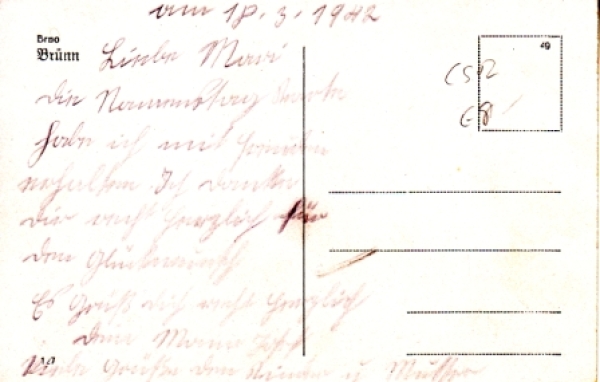 am 18.3.1942
Brno
Brünn
Liebe Mari
die Namenstag Karte
habe ich mit Freuden
erhalten. Ich danke
dir recht herzlich für
den Glückwunsch
Es Grüßt dich recht herzlich
dein
Viele Grüße den Kinder u. Mutter
49